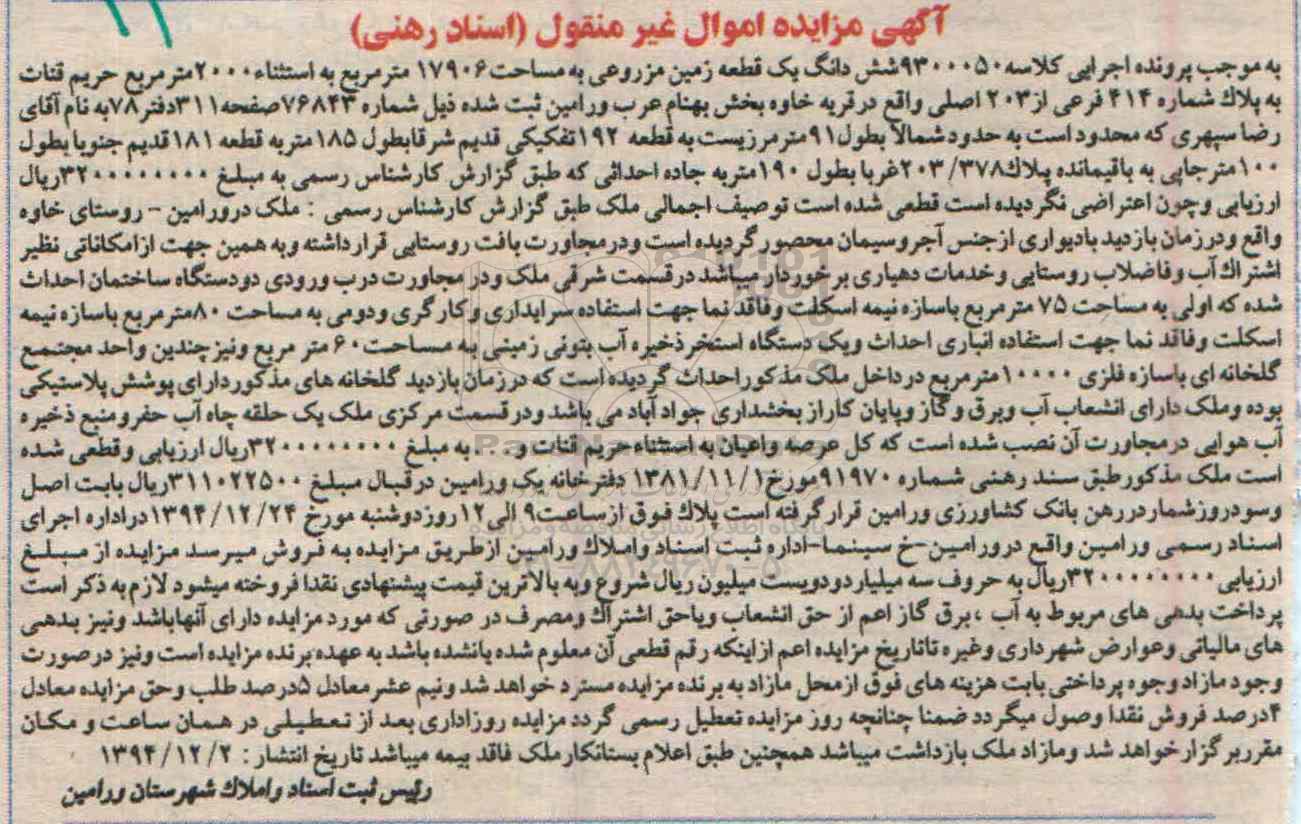 آگهی مزایده اموال غیر منقول (اسناد رهنی)
به موجب پرونده اجرایی کلاسه ۹۳۰۰۰۵۰ شش دانگ یک قطعه زمین مزروعی به مساحت ۱۷۹۰۶ مترمربع به استثناء ۲۰۰۰ مترمربع حریم قنات
به پلاك شماره ۴۱۴ فرعی از ۲۰۳ اصلی واقع در قریه خاوه بخش بهنام عرب ورامین ثبت شده ذیل شماره ۷۶۸۴۳ صفحه ۳۱۱ دفتر ۷۸ به نام آقای
رضا سپهری که محدود است به حدود شمالا بطول ۹۱ متر مرزیست به قطعه ۱۹۲ تفکیکی قدیم شرقا بطول ۱۸۵ متر به قطعه ۱۸۱ قدیم جنوبا بطول
۱۰۰ متر جایی به باقیمانده پلاك ۲۰۳/۳۷۸ غربا بطول ۱۹۰ متر به جاده احداثی که طبق گزارش کارشناس رسمی به مبلغ ۳۲۰۰۰۰۰۰۰۰ ریال
ارزیابی و چون اعتراضی نگردیده است قطعی شده است توصیف اجمالی ملک طبق گزارش کارشناس رسمی : ملک در ورامین - روستای خاوه
واقع و در زمان بازدید با دیواری از جنس آجر و سیمان محصور گردیده است و در مجاورت بافت روستایی قرار داشته و به همین جهت از امکاناتی نظیر
اشتراك آب و فاضلاب روستایی و خدمات دهیاری برخوردار میباشد در قسمت شرقی ملک و در مجاورت درب ورودی دو دستگاه ساختمان احداث
شده که اولی به مساحت ۷۵ مترمربع با سازه نیمه اسکلت و فاقد نما جهت استفاده سرایداری و کارگری و دومی به مساحت ۸۰ مترمربع با سازه نیمه
اسکلت و فاقد نما جهت استفاده انباری احداث و یک دستگاه استخر ذخیره آب بتونی زمینی به مساحت ۶۰ متر مربع و نیز چندین واحد مجتمع
گلخانه ای با سازه فلزی ۱۰۰۰۰ مترمربع در داخل ملک مذکور احداث گردیده است که در زمان بازدید گلخانه های مذکور دارای پوشش پلاستیکی
بوده و ملک دارای انشعاب آب و برق و گاز و پایان کار از بخشداری جواد آباد می باشد و در قسمت مرکزی ملک یک حلقه چاه آب حفر و منبع ذخیره
آب هوایی در مجاورت آن نصب شده است که کل عرصه و اعیان به استثناء حریم قنات و ... به مبلغ ۳۲۰۰۰۰۰۰۰۰ ریال ارزیابی و قطعی شده
است ملک مذکور طبق سند رهنی شماره ۹۱۹۷۰ مورخ ۱۳۸۱/۱۱/۱ دفترخانه یک ورامین در قبال مبلغ ۳۱۱۰۲۲۵۰۰ ریال بابت اصل
و سود روز شمار در رهن بانک کشاورزی ورامین قرار گرفته است پلاك فوق از ساعت ۹ الی ۱۲ روز دوشنبه مورخ ۱۳۹۴/۱۲/۲۴ در اداره اجرای
اسناد رسمی ورامین واقع در ورامین-خ سینما-اداره ثبت اسناد و املاك ورامین از طریق مزایده به فروش میرسد مزایده از مبلغ
ارزیابی ۳۲۰۰۰۰۰۰۰۰ ریال به حروف سه میلیارد دویست میلیون ریال شروع و به بالاترین قیمت پیشنهادی نقدا فروخته میشود لازم به ذکر است
پرداخت بدهی های مربوط به آب ، برق گاز اعم از حق انشعاب و یا حق اشتراك و مصرف در صورتی که مورد مزایده دارای آنها باشد و نیز بدهی
های مالیاتی و عوارض شهرداری و غیره تا تاریخ مزایده اعم از اینکه رقم قطعی آن معلوم شده یا نشده باشد به عهده برنده مزایده است و نیز در صورت
وجود مازاد وجوه پرداختی بابت هزینه های فوق از محل مازاد به برنده مزایده مسترد خواهد شد و نیم عشر معادل ۵ درصد طلب و حق مزایده معادل
۴ درصد فروش نقدا وصول میگردد ضمنا چنانچه روز مزایده تعطیل رسمی گردد مزایده روز اداری بعد از تعطیلی در همان ساعت و مکان
مقرر برگزار خواهد شد و مازاد ملک بازداشت میباشد همچنین طبق اعلام بستانکار ملک فاقد بیمه میباشد تاریخ انتشار : ۱۳۹۴/۱۲/۲
رئیس ثبت اسناد و املاك شهرستان ورامین